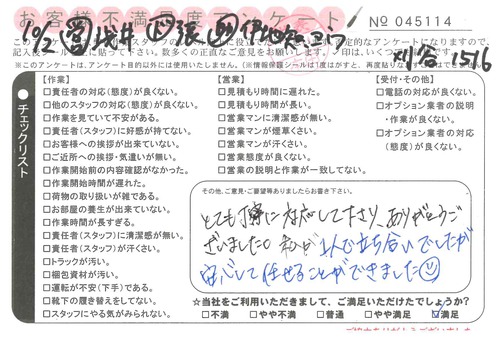 お客様不満足度アンケート
№ 045114
10/2 営 浅井
刈谷 1516
※このアンケートは、アンケート目的以外には使用いたしません。
チェックリスト
【作業】
□責任者の対応（態度）が良くない。
□他のスタッフの対応（態度）が良くない。
□作業を見ていて不安がある。
□責任者（スタッフ）に好感が持てない。
□お客様への挨拶が出来ていない。
□ご近所への挨拶・気遣いが無い。
□作業開始前の内容確認がなかった。
□作業開始時間が遅れた。
□荷物の取り扱いが雑である。
□お部屋の養生が出来ていない。
□作業時間が長すぎる。
□責任者（スタッフ）に清潔感が無い。
□責任者（スタッフ）が汗くさい。
□トラックが汚い。
□梱包資材が汚い。
□運転が不安（下手）である。
□靴下の履き替えをしてない。
□スタッフにやる気がみられない。
【営業】
□見積もり時間に遅れた。
□見積もり時間が長い。
□営業マンに清潔感が無い。
□営業マンが煙草くさい。
□営業マンが汗くさい。
□営業態度が良くない。
□営業の説明と作業が一致してない。
【受付・その他】
□電話の対応が良くない。
□オプション業者の説明
・作業が良くない。
□オプション業者の対応
（態度）が良くない。
その他、ご意見・ご要望等ありましたらお書き下さい。
とても丁寧に対応して下さり、ありがとうご
ざいました。私が1人で立ち合いでしたが
安心して任せることができました
☆当社をご利用いただきまして、ご満足いただけたでしょうか？
□不満 □やや不満 □普通 □やや満足 ☑満足